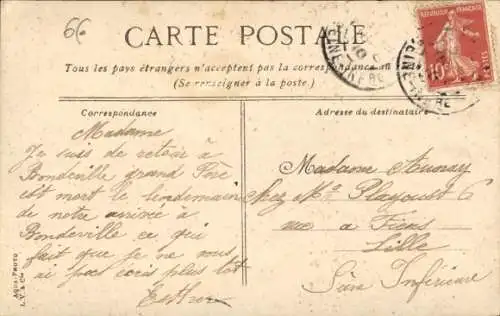 66
CARTE POSTALE
Tous les pays étrangers n'acceptent pas la correspondance au
(Se renseigner à la poste.)
Correspondance
Adresse du destinataire
REPUBLIQUE FRANÇAISE
10
Madame
Je suis de retour à
Bondeville grand Père
est mort le lendemain
de notre arrivée à
Bondeville ce qui
fait que je ne vous
ai pas écris plus tôt
Esther
Madame Aunay
chez Me Playoust 6
rue a Fiens
Lille
Seine Inférieure
AQUA-PHOTO
L.V. & Cie